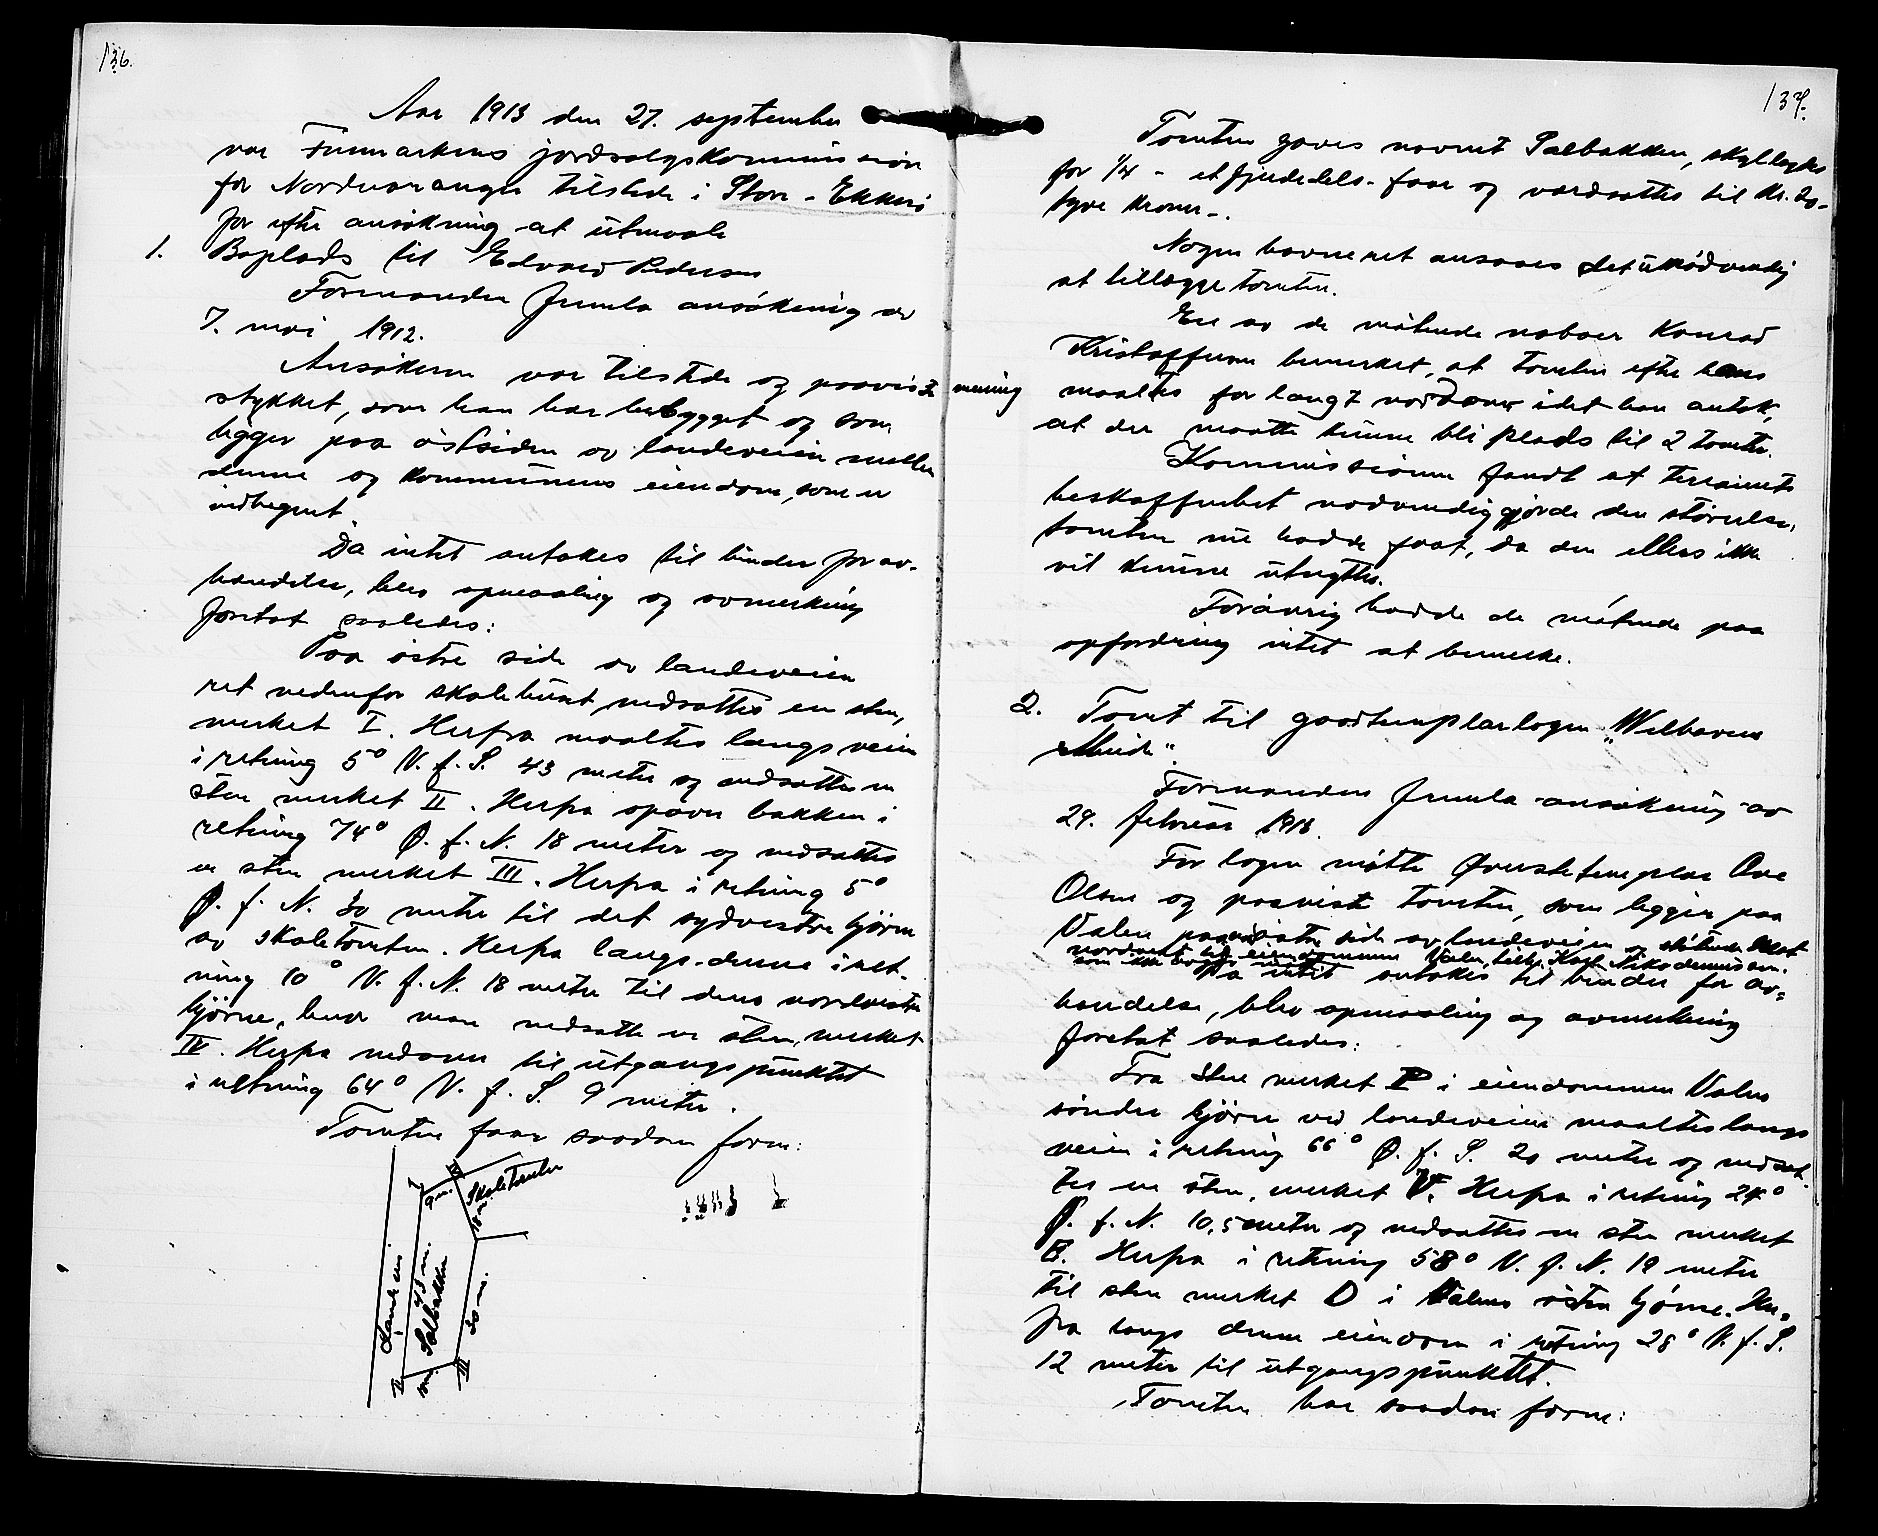 136.
Aar 1913 den 27. september
var Finmarkens jordsalgskommission
for Nordvaranger tilstede i Store-Ekkerö
for efter ansökning at utmaale
1. Boplads til Edvard Pedersen
Formanden fremla ansökning av
7. mai 1912.
Ansökeren var tilstede og paaviste
stykket, som han har bebygget og som
ligger paa östsiden av landeveien mellem
denne og kommunens eiendom, som er
indhegnet.
Da intet antokes til hinder for av-
hændelse, blev opmaaling og avmerkning
foretat saaledes:
Paa östre side av landeveien
ret nedenfor skolehuset nedsattes en sten,
merket I. Herfra maaltes langs veien
i retning 5° V. f. S. 43 meter og nedsattes en
sten merket II. Herfra opover bakken i
retning 74° Ø. f. N. 18 meter og nedsattes
en sten merket III. Herfra i retning 5°
Ø. f. N. 30 meter til det sydvestre hjørne
av skoletomten. Herfra langs denne i ret-
ning 10° V. f. N. 18 meter til dens nordvestre
hjörne, hvor man nedsatte en sten, merket
IV. Herfra nedover til utgangspunktet
i retning 64° V. f. S. 9 meter.
Tomten faar saadan form:
Landevei
I
9 m.
IV
Skoletomten
18 m.
43 m.
Solbakken
30 m.
II
18 m.
III
137.
Tomten gaves navnet Solbakken, skyldlagtes
for 1/4 - et fjerdedels- øre og værdsattes til kr. 20-
tyve kroner-.
Nogen havneret ansaaes det unødvendig
at tillægge tomten.
En av de møtende naboer Konrad
Kristoffersen bemerket, at tomten efter hans
mening maaltes for langt nordover idet han antok,
at der maatte kunne bli plads til 2 tomter.
Kommissionen fandt at terrainets
beskaffenhet nødvendiggjorde den störrelse,
tomten nu hadde faat, da den ellers ikke
vil kunne utnyttes.
Forövrig hadde de møtende paa
opfordring intet at bemerke.
2. Tomt til goodtemplarlogen „Velbaren
Minde“.
Formanden fremla ansökning av
29. februar 1913.
For logen møtte Øverstetemplar Ove
Olsen og paaviste tomten, som ligger paa
Valen paa östre side av landeveien og støtende mot
nordvest til eiendommen Valen, tilh. Karl Nikodemussen.
Da intet antokes til hinder for av-
hændelse, blev opmaaling og avmerkning
foretat saaledes:
Fra sten merket P i eiendommen Valens
söndre hjörne ved landeveien maaltes langs
veien i retning 66° Ø. f. S. 20 meter og nedsat-
tes en sten, merket V. Herfra i retning 24°
Ø. f. N. 10,5 meter og nedsattes en sten merket
B. Herfra i retning 58° V. f. N. 19 meter
til sten merket D i Valens östre hjörne. Her-
fra langs denne eiendom i retning 28° V. f. S.
12 meter til utgangspunktet.
Tomten har saadan form: